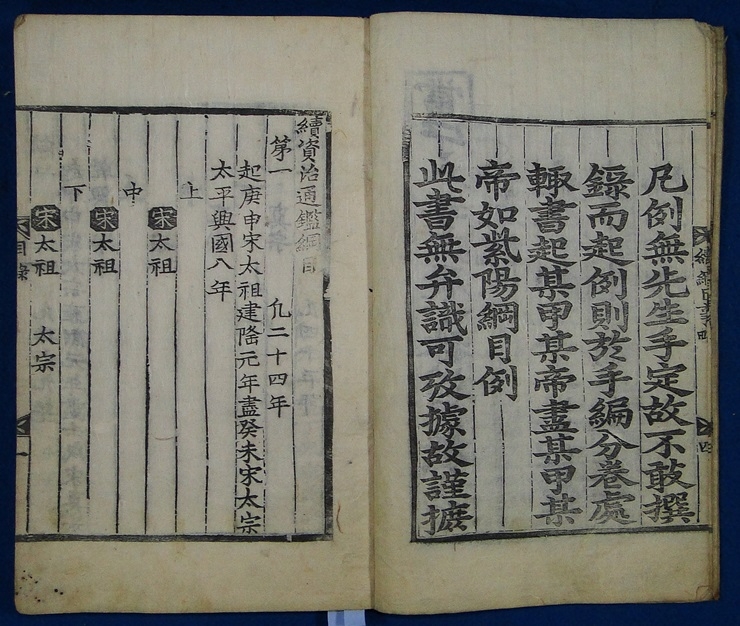 凡例無先生手定故不敢撰
錄而起例則於手編分卷處
輙書起某甲某帝盡某甲某
帝如紫陽綱目例
此書無弁識可攷據故謹摭
續資治通鑑綱目
第一 凡二十四年
起庚申宋太祖建隆元年盡癸未宋太宗
太平興國八年
上
宋太祖
中
宋太祖
下
宋太祖 太宗
目錄 一